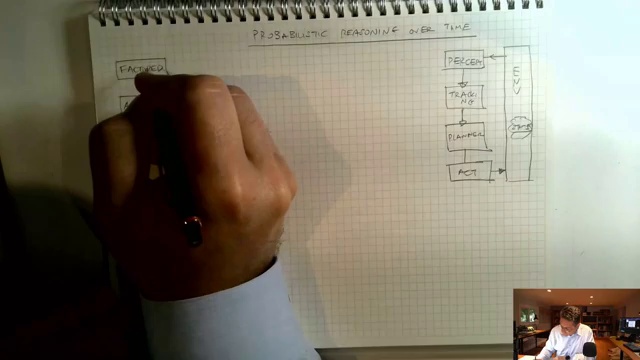 PROBABILISTIC REASONING OVER TIME
FACTORED
PERCEP
TRACKI
NG
PLANNER
ACT
ENV